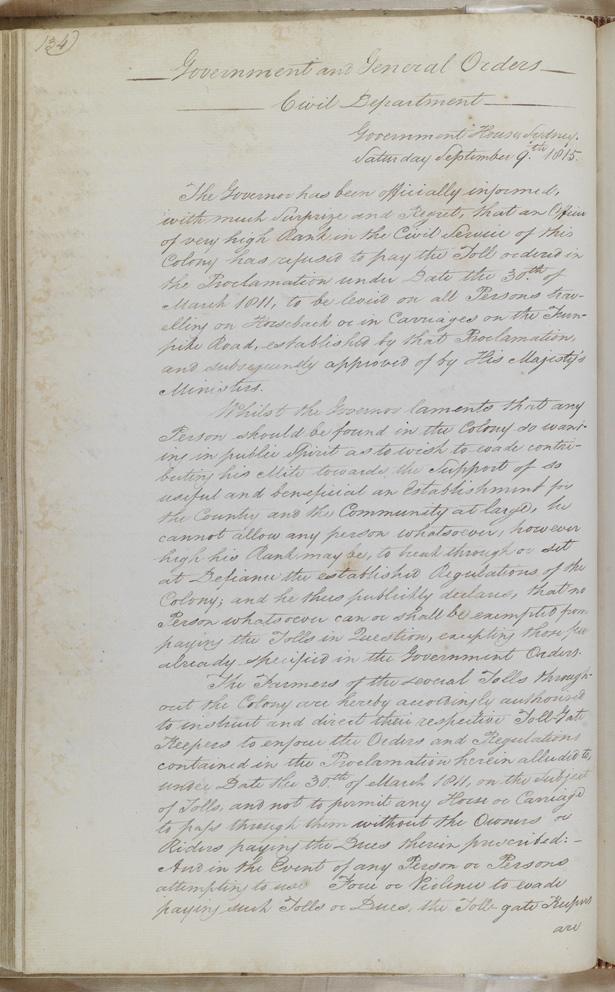 134)
Government and General Orders
Civil Department
Government House Sydney.
Saturday September 9.th 1815.
The Governor has been officially informed,
with much Surprize and Regret, that an Officer
of very high Rank in the Civil Service of this
Colony has refused to pay the Toll ordered in
the Proclamation under Date the 30.th of
March 1811, to be levied on all Persons trav-
elling on Horseback or in Carriages on the Turn-
pike Road, established by that Proclamation,
and subsequently approved of by His Majesty's
Ministers.
Whilst the Governor laments that any
Person should be found in the Colony so want-
ing in public Spirit as to wish to evade contri-
buting his Mite towards the Support of so
useful and beneficial an Establishment for
the Country and the Community at large, he
cannot allow any person whatsoever, however
high his Rank may be, to break through or set
at Defiance the established Regulations of the
Colony; and he thus publicly declares, that no
Person whatsoever can or shall be exempted from
paying the Tolls in Question, excepting those few
already specified in the Government Orders.
The Farmers of the several Tolls through-
out the Colony are hereby accordingly authorised
to instruct and direct their respective Toll-Gate
Keepers to enforce the Orders and Regulations
contained in the Proclamation herein alluded to,
under Date the 30.th of March 1811, on the Subject
of Tolls, and not to permit any Horse or Carriage
to pass through them without the Owners or
Riders paying the Dues therein prescribed:-
And in the Event of any Person or Persons
attempting to use Force or Violence to evade
paying such Tolls or Dues, the Toll gate Keepers
are